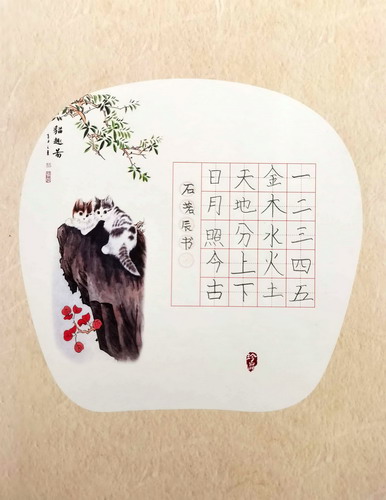 一二三四五
金木水火土
天地分上下
日月照今古
石若辰书